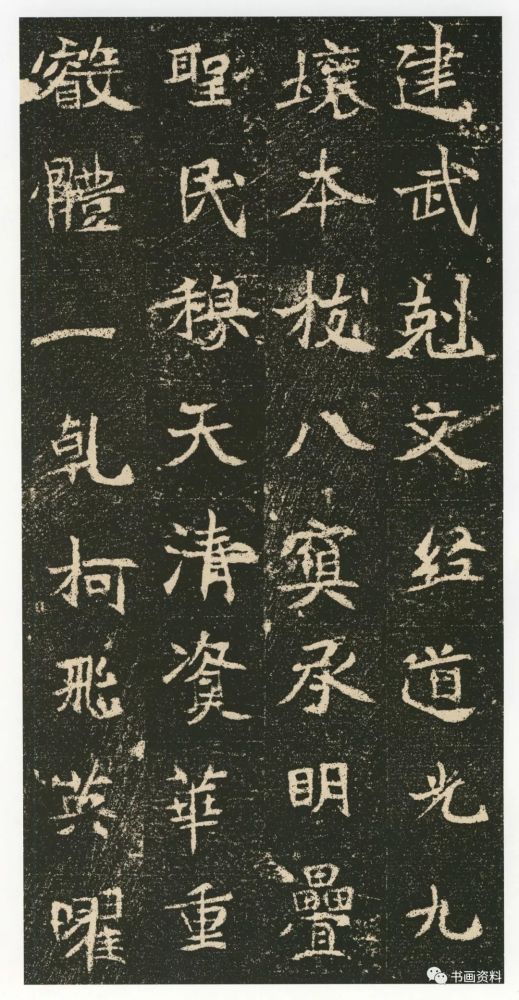 建武剋文经道光九
壤本枝八承明疊
聖民穆天清資華重
叡體一乹柯飛英曜
书画资料